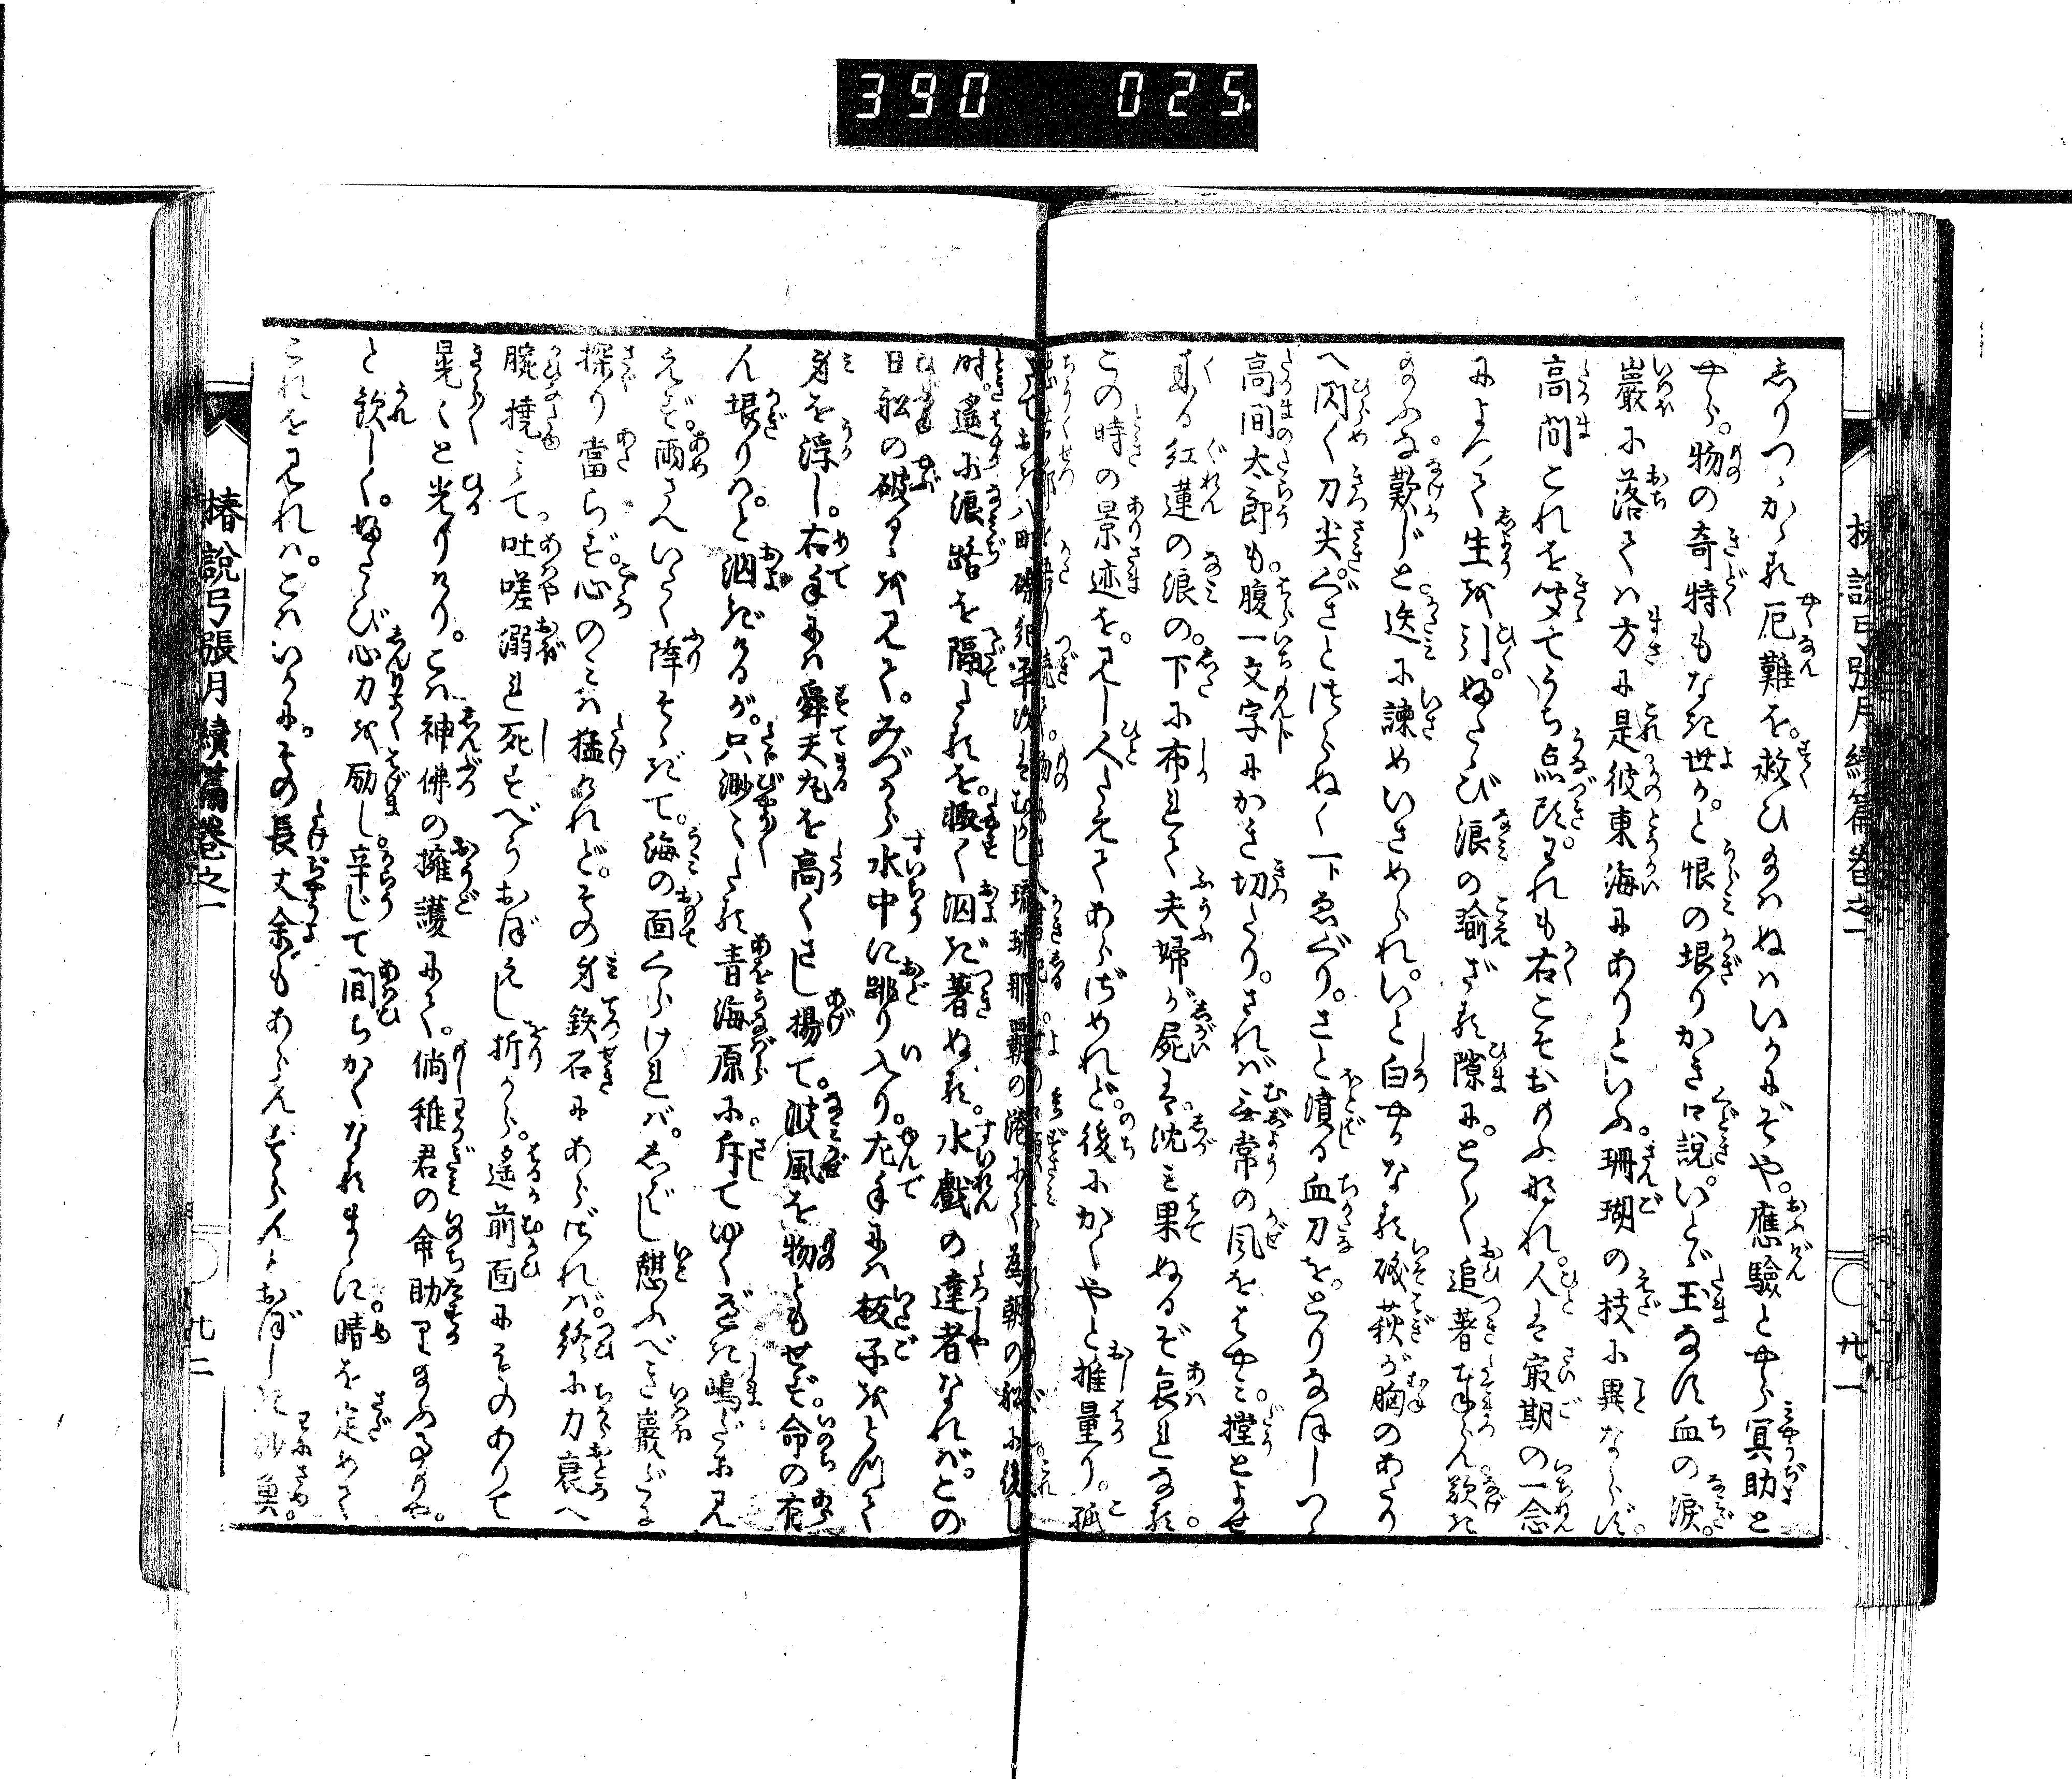 390 025
しりつゝかゝる厄難を。救ひ給はぬはいかにぞや。應驗とやら冥助と
やら。物の奇特もなき世か。と恨の垠りかき口説。いとゞ玉なす血の涙。
巖に落ては方に是彼東海にありといふ。珊瑚の枝に異ならず。
高間これを聞てうち点頭。われも右こそおもふなれ。人は最期の一念
によりて生を引。ふたゝび浪の踰ざる隙に。とく〳〵追著奉らん歎き
給ふな歎じと。迭に諫めいさめられ。いと白やかなる磯萩が胸のあたり
へ閃く刀尖。ぐさとつらぬく一下ゑぐり。さと濆る血刀を。とりなほしつゝ
高間太郎も。腹一文字にかき切たり。されば無常の風をはやみ。撞とよせ
来る紅蓮の浪の。下に布れて夫婦が屍は。沈み果ぬるぞ哀れなる。
この時の景迹を。見し人たえてあらざめれど。後にかくやと推量り。
さても八町礫紀平治はむかし琉球那覇の港にて為朝の船に後し
時。遙に浪路を隔たるを。輙く泅ぎ著ぬる。水戯の達者なれば。その
日船の破るゝを見て。みづから水中に跳り入り。左手には板子をとりて
身を浮し。右手には舜天丸を高くさし揚て。波風を物ともせず。命の有
ん垠りは。と泅ぎけるが。只渺々たる青海原に。斥てゆくべき嶋だに見
えず。雨さへいたく降そゝぎて。海の面くらければ。しばし憩ふべき巖だに
探り當らず。心のみは猛けれど。その身鉄石にあらざれば。終に力衰へ
腕撓みて。吐嗟溺れ死すべうおぼえし折から。遙前面にものありて
晃〳〵と光りけり。こは神佛の擁護にて。倘稚君の命助り給ふ事もや。
と歓しく。ふたゝび心力を励し。辛じて間ちかくなるまゝに。晴を定めて
これを見れば。こはいかに。その長丈余もあらんずらんとおぼしき沙魚。
椿説弓張月續篇卷之一
廿一
椿説弓張月續篇卷之一
廿二